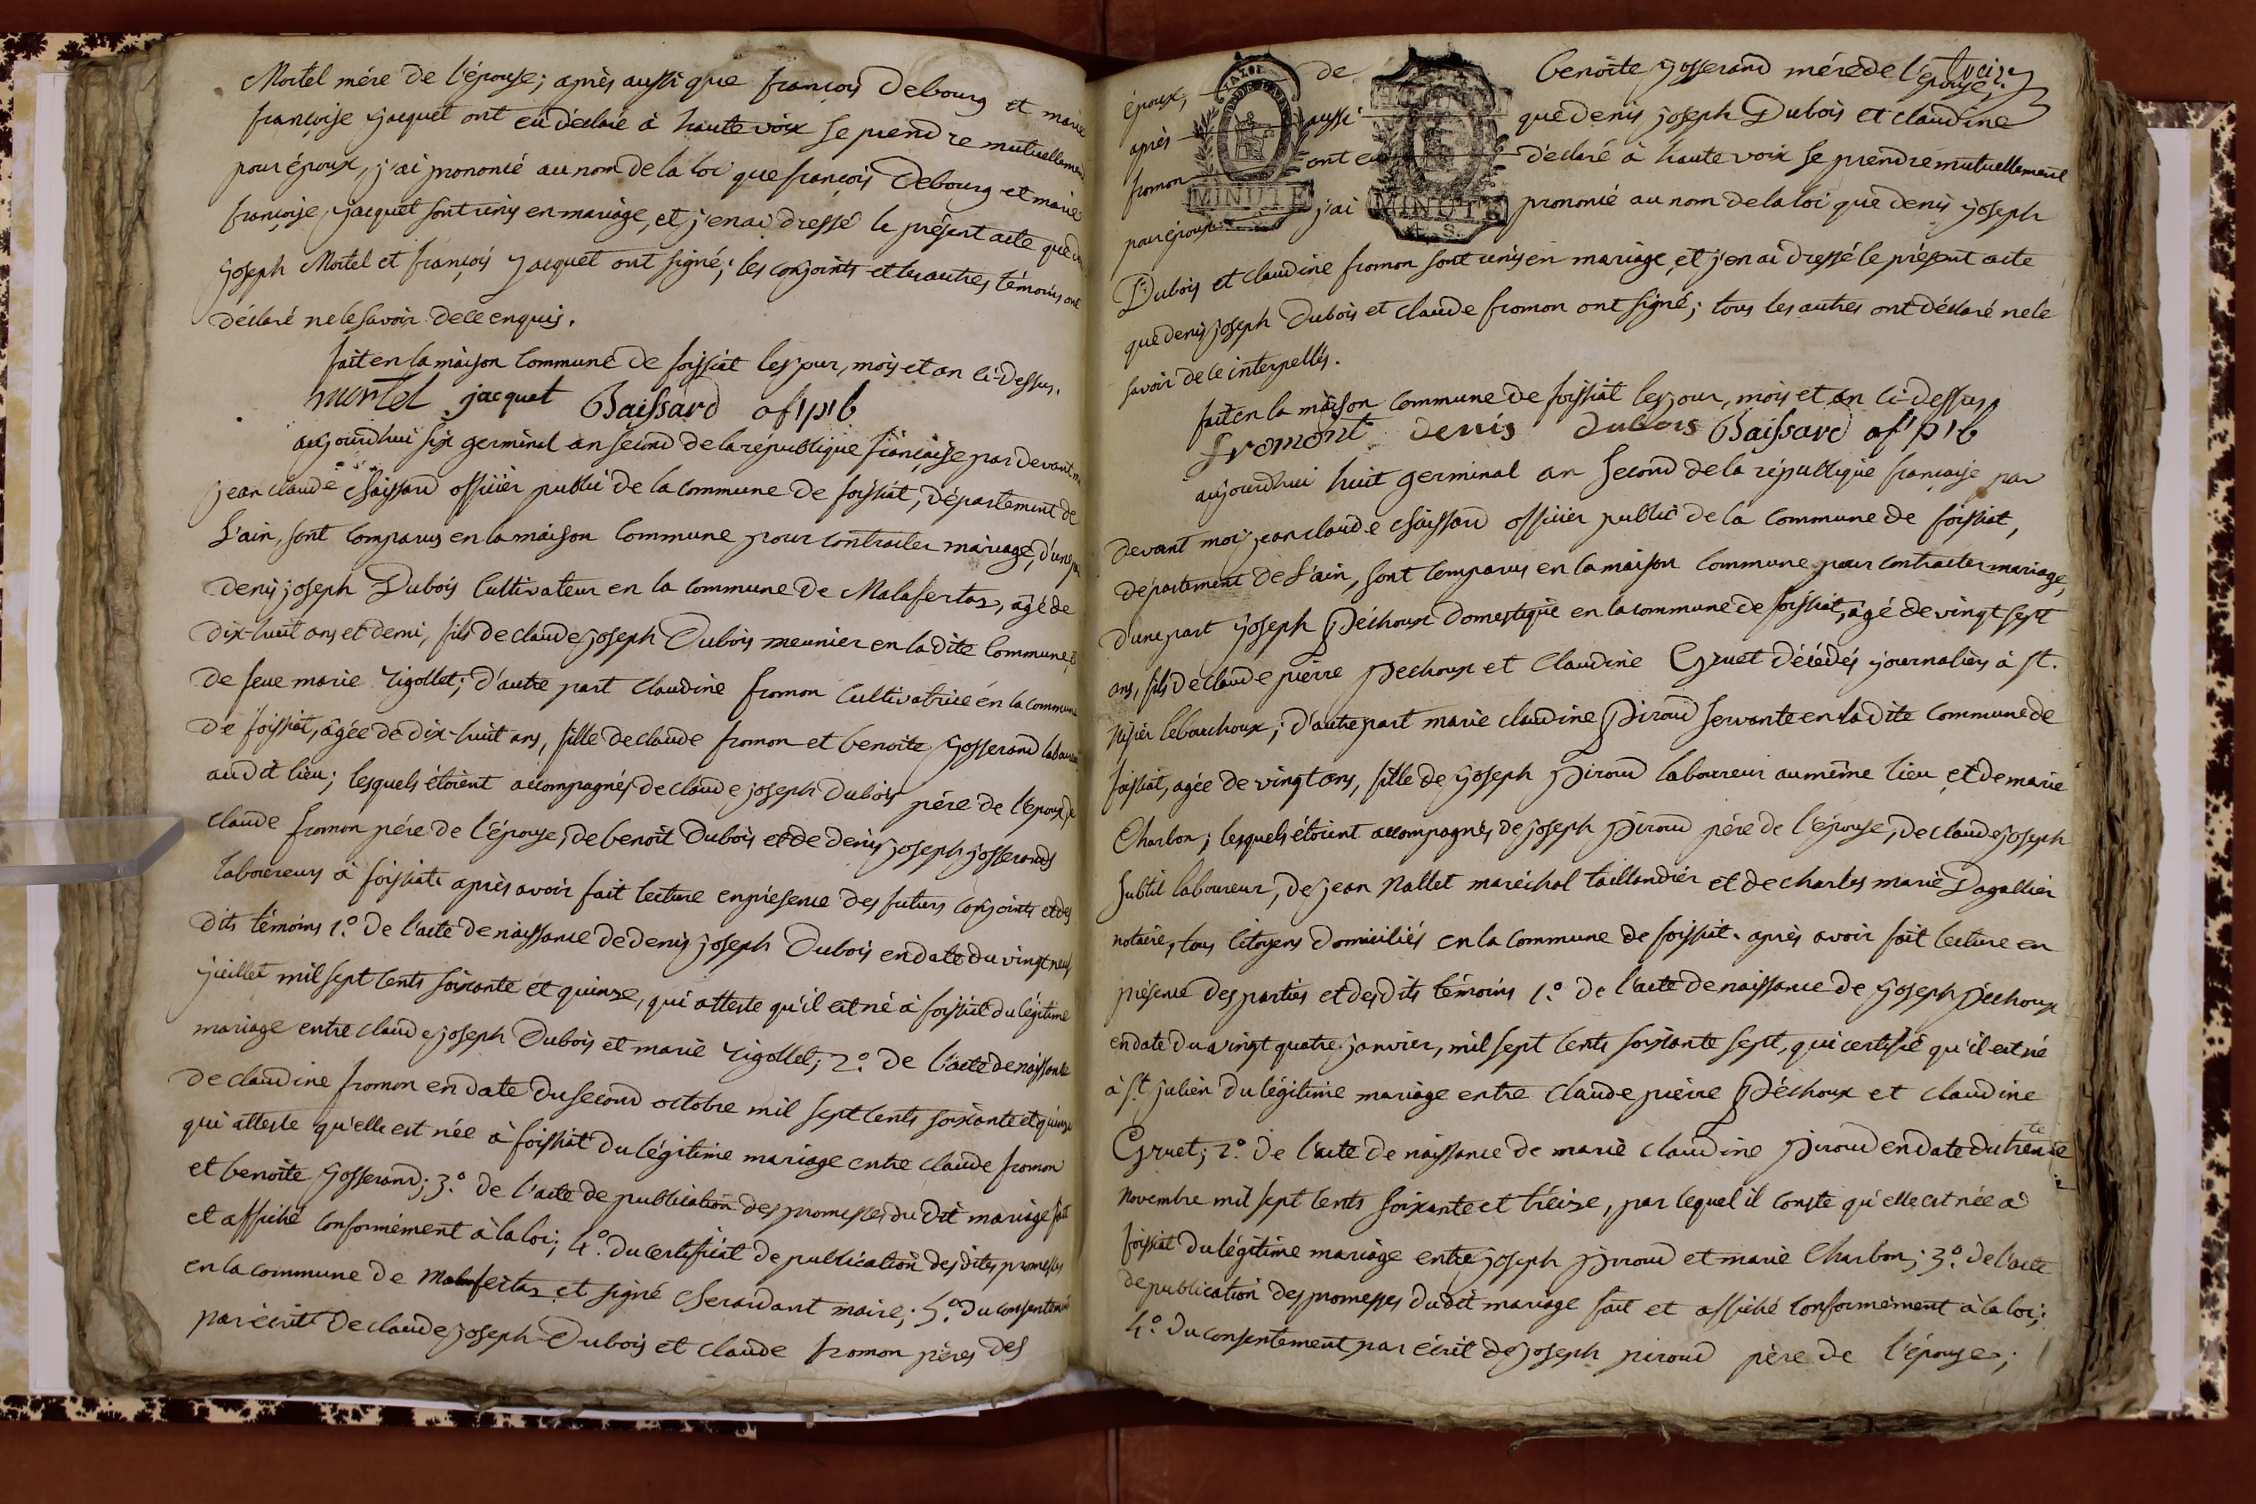 Mortel mére de l'épouse; après aussi que françois Debourg et marie
françoise jacquet ont eu déclaré à haute voix se prendre mutuellement
pour époux, j'ai prononcé au nom de la loi que françois Debourg et marie
françoise jacquet sont unis en mariage, et j'en ai dressé le présent acte que
joseph Mortel et françois jacquet ont signé; les conjoints et les autres témoins ont
déclaré ne le savoir de ce enquis.
fait en la maison commune de foissiat les jour, mois et an ci-dessus.
mortel jacquet Baissard of. p. b
aujourdhui six germinal an second de la république française par devant moi
jean claude Baissard officier public de la commune de foissiat, département de
L'ain, sont comparus en la maison commune pour contracter mariage, d'une part
denis joseph Dubois cultivateur en la commune de Malafertaz, âgé de
dix-huit ans et demi, fils de claude joseph Dubois meunier en la dite commune, et
de feue marie rigollet; d'autre part claudine fromon cultivatrice en la commune
de foissiat, agée de dix-huit ans, fille de claude fromon et benoite josserand laboureurs
au dit lieu; lesquels étoient accompagnés de claude joseph Dubois pére de l'époux, de
claude fromon pére de l'épouse, de benoît Dubois et de denis joseph josserands
laboureurs à foissiat. après avoir fait lecture en présence des futurs conjoints et des
dits témoins 1.º de l'acte de naissance de denis joseph Dubois en date du vingt neuf
juillet mil sept cents soixante et quinze, qui atteste qu'il est né à foissiat du légitime
mariage entre claude joseph Dubois et marie rigollet; 2.º de l'acte de naissance
de claudine fromon en date du second octobre mil sept cents soixante et quinze
qui atteste qu'elle est née à foissiat du légitime mariage entre claude fromon
et benoite josserand; 3.º de l'acte de publication des promesses du dit mariage fait
et affiché conformément à la loi; 4.º du certificat de publication des dites promesses
en la commune de Malafertaz et signé maire; 5.º du consentement
par écrit de claude joseph Dubois et claude fromon péres des
époux, de benoite josserand mére de l'épouse;
après aussi que denis joseph Dubois et claudine
fromon ont eu déclaré à haute voix se prendre mutuellement
pour époux j'ai prononcé au nom de la loi que denis joseph
MINUTE MINUTE
Dubois et claudine fromon sont unis en mariage, et j'en ai dressé le présent acte
que denis joseph Dubois et claude fromon ont signé; tous les autres ont déclaré ne le
savoir de ce interpellés.
fait en la maison commune de foissiat les jour, mois et an ci-dessus,
fromont denis dubois Baissard of. p. b
aujourdhui huit germinal an second de la république française par
devant moi jean claude Baissard officier public de la commune de foissiat,
département de L'ain, sont comparus en la maison commune pour contracter mariage,
d'une part joseph Péchoux domestique en la commune de foissiat, âgé de vingt sept
ans, fils de claude pierre pechoux et claudine Gruet décédés journaliers à st.
nisier lebouchoux; d'autre part marie claudine Piroud servante en la dite commune de
foissiat, agée de vingt ans, fille de joseph piroud laboureur au même lieu et de marie
Charbon; lesquels étoient accompagnés de joseph piroud pére de l'épouse, de claude joseph
subtil laboureur, de jean Nallet maréchal taillandier et de charles marie Dagallier
notaire, tous citoyens domiciliés en la commune de foissiat. après avoir fait lecture en
présence des parties et des dits témoins 1.º de l'acte de naissance de joseph péchoux
en date du vingt quatre janvier, mil sept cents soixante sept, qui certifie qu'il est né
à st. julien du légitime mariage entre claude pierre Péchoux et claudine
Gruet; 2.º de l'acte de naissance de marie claudine piroud en date du trente
novembre mil sept cents soixante et treize, par lequel il conste qu'elle est née à
foissiat du légitime mariage entre joseph piroud et marie Charbon; 3.º de l'acte
de publication des promesses du dit mariage fait et affiché conformément à la loi;
4.º du consentement par écrit de joseph piroud pére de l'épouse;